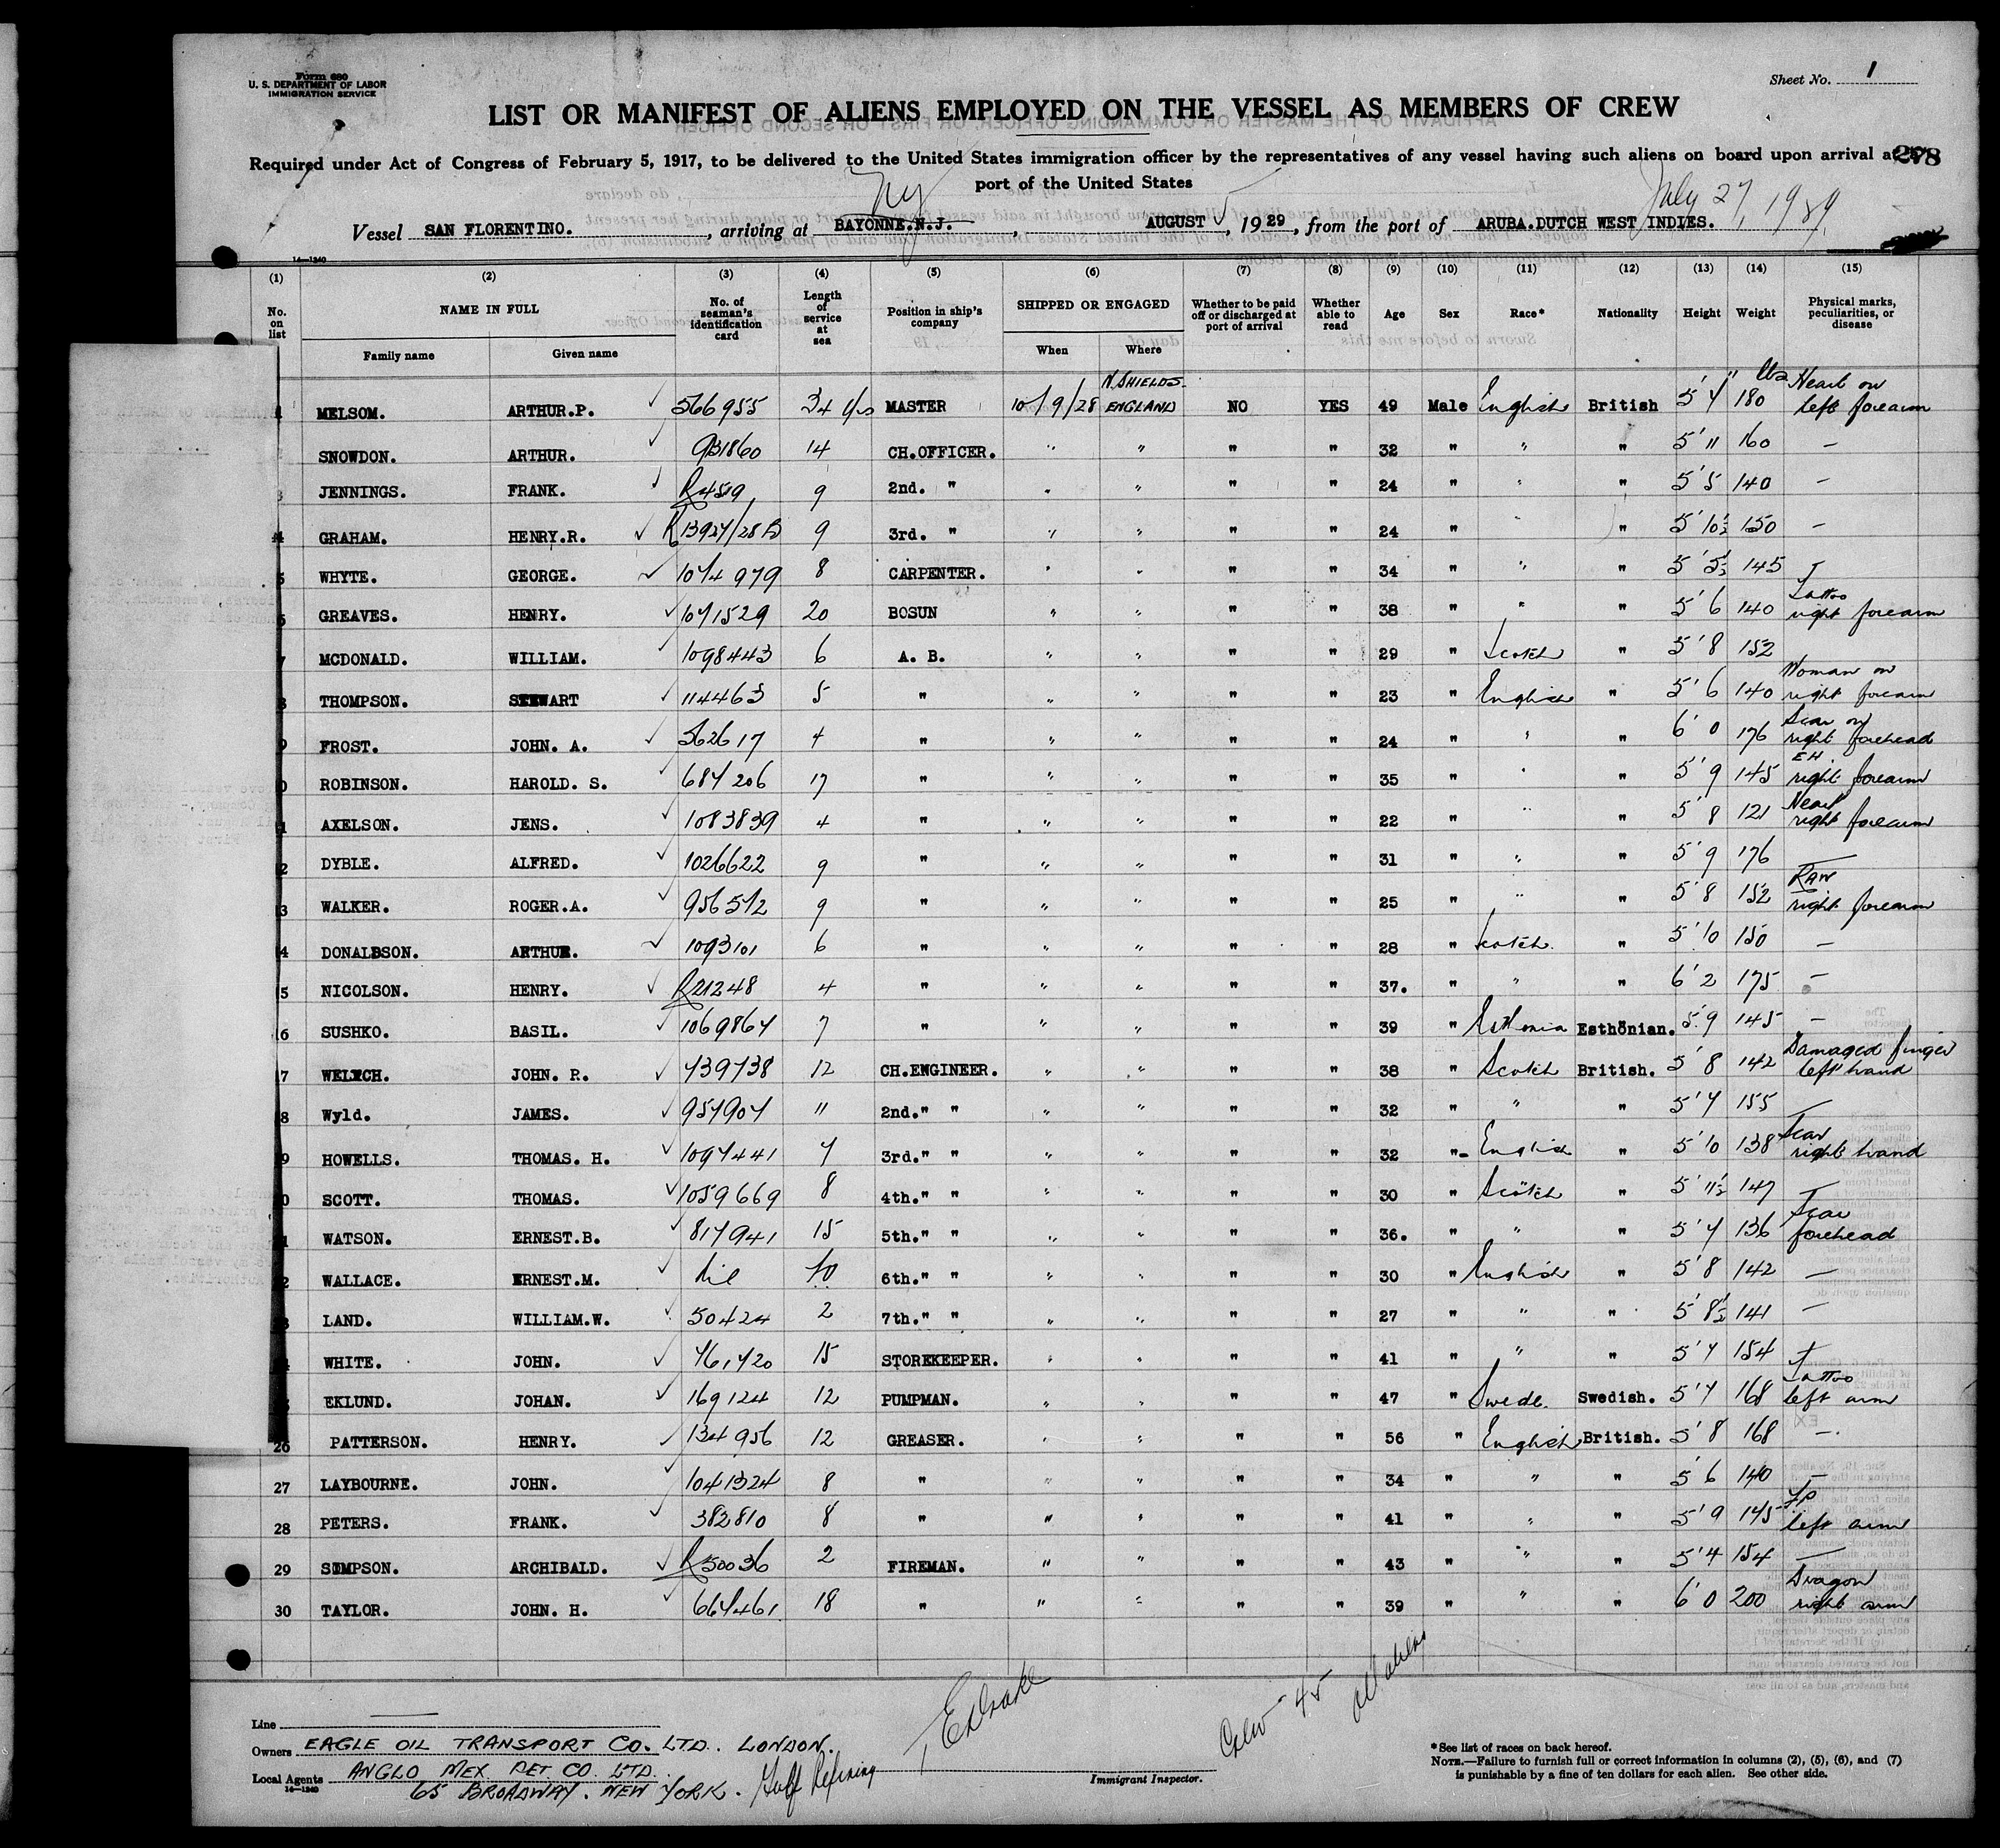 Form 680
U. S. DEPARTMENT OF LABOR
IMMIGRATION SERVICE
Sheet No. 1
LIST OR MANIFEST OF ALIENS EMPLOYED ON THE VESSEL AS MEMBERS OF CREW
Required under Act of Congress of February 5, 1917, to be delivered to the United States immigration officer by the representatives of any vessel having such aliens on board upon arrival at
port of the United States
278
Ny
July 27, 1929
Vessel SAN FLORENTINO. , arriving at BAYONNE.N.J. , AUGUST , 1929 , from the port of ARUBA.DUTCH WEST INDIES.
14—1240
(1) (2) (3) (4) (5) (6) (7) (8) (9) (10) (11) (12) (13) (14) (15)
No. on list NAME IN FULL No. of seaman's identification card Length of service at sea Position in ship's company SHIPPED OR ENGAGED Whether to be paid off or discharged at port of arrival Whether able to read Age Sex Race* Nationality Height Weight Physical marks, peculiarities, or disease
Family name Given name When Where
MELSOM. ARTHUR.P. 566955 34 yrs MASTER 10/9/28 N. SHIELDS. ENGLAND NO YES 49 Male English British 5' 7" 180 lbs Heart on left forearm
SNOWDON. ARTHUR. 931860 14 CH.OFFICER. " " " " 32 " " " 5' 11 160 —
JENNINGS. FRANK. R459 9 2nd. " " " " " 24 " " " 5' 5 140 —
4 GRAHAM. HENRY.R. R13927/28 9 3rd. " " " " " 24 " " " 5' 10½ 150 —
5 WHYTE. GEORGE. 1074979 8 CARPENTER. " " " " 34 " " " 5' 5½ 145 —
6 GREAVES. HENRY. 1071529 20 BOSUN " " " " 38 " " " 5' 6 140 Tattoo right forearm
7 MCDONALD. WILLIAM. 1098443 6 A. B. " " " " 29 " Scotch " 5' 8 152
8 THOMPSON. STEWART 114463 5 " " " " " 23 " English " 5' 6 140 Woman on right forearm
9 FROST. JOHN. A. 562617 4 " " " " " 24 " " " 6' 0 176 Scar on right forehead
0 ROBINSON. HAROLD. S. 687206 17 " " " " " 35 " " " 5' 9 145 EH. right forearm
1 AXELSON. JENS. 1083839 4 " " " " " 22 " " " 5' 8 121 Heart right forearm
2 DYBLE. ALFRED. 1026622 9 " " " " " 31 " " " 5' 9 176 —
3 WALKER. ROGER.A. 956572 9 " " " " " 25 " " " 5' 8 152 RAW right forearm
4 DONALDSON. ARTHUR. 1093101 6 " " " " " 28 " Scotch. " 5' 10 150 —
5 NICOLSON. HENRY. R21248 4 " " " " " 37. " " " 6' 2 175 —
16 SUSHKO. BASIL. 1069867 7 " " " " " 39 " Esthonia Esthonian. 5' 9 145 —
7 WELCH. JOHN. R. 739738 12 CH.ENGINEER. " " " " 38 " Scotch British. 5' 8 142 Damaged finger left hand
8 Wyld. JAMES. 957907 11 2nd." " " " " " 32 " " " 5' 7 155 —
9 HOWELLS. THOMAS. H. 1097441 7 3rd." " " " " " 32 " English " 5' 10 138 Scar right hand
0 SCOTT. THOMAS. 1059669 8 4th." " " " " " 30 " Scotch " 5' 11½ 147 —
1 WATSON. ERNEST.B. 817941 15 5th." " " " " " 36. " " " 5' 7 136 Scar forehead
2 WALLACE. ERNEST.M. Nil 10 6th." " " " " " 30 " English " 5' 8 142 —
3 LAND. WILLIAM.W. 50424 2 7th." " " " " " 27 " " " 5' 8½ 141 —
4 WHITE. JOHN. 761720 15 STOREKEEPER. " " " " 41 " " " 5' 7 154 —
EKLUND. JOHAN. 169124 12 PUMPMAN. " " " " 47 " Swede. Swedish. 5' 7 168 Tattoo left arm
26 PATTERSON. HENRY. 134956 12 GREASER. " " " " 56 " English British. 5' 8 168 —.
27 LAYBOURNE. JOHN. 1041324 8 " " " " " 34 " " " 5' 6 140 —
28 PETERS. FRANK. 382810 8 " " " " " 41 " " " 5' 9 145 FP left arm
29 SIMPSON. ARCHIBALD. R50036 2 FIREMAN. " " " " 43 " " " 5' 4 154 —
30 TAYLOR. JOHN. H. 667461 18 " " " " " 39 " " " 6' 0 200 Dragon right arm
Crew 45
Line
Owners EAGLE OIL TRANSPORT CO. LTD. LONDON.
Local Agents ANGLO MEX. PET. CO. LTD.
14—1240
65 BROADWAY. NEW YORK. Gulf Refining
Immigrant Inspector.
*See list of races on back hereof.
NOTE.—Failure to furnish full or correct information in columns (2), (5), (6), and (7)
is punishable by a fine of ten dollars for each alien. See other side.